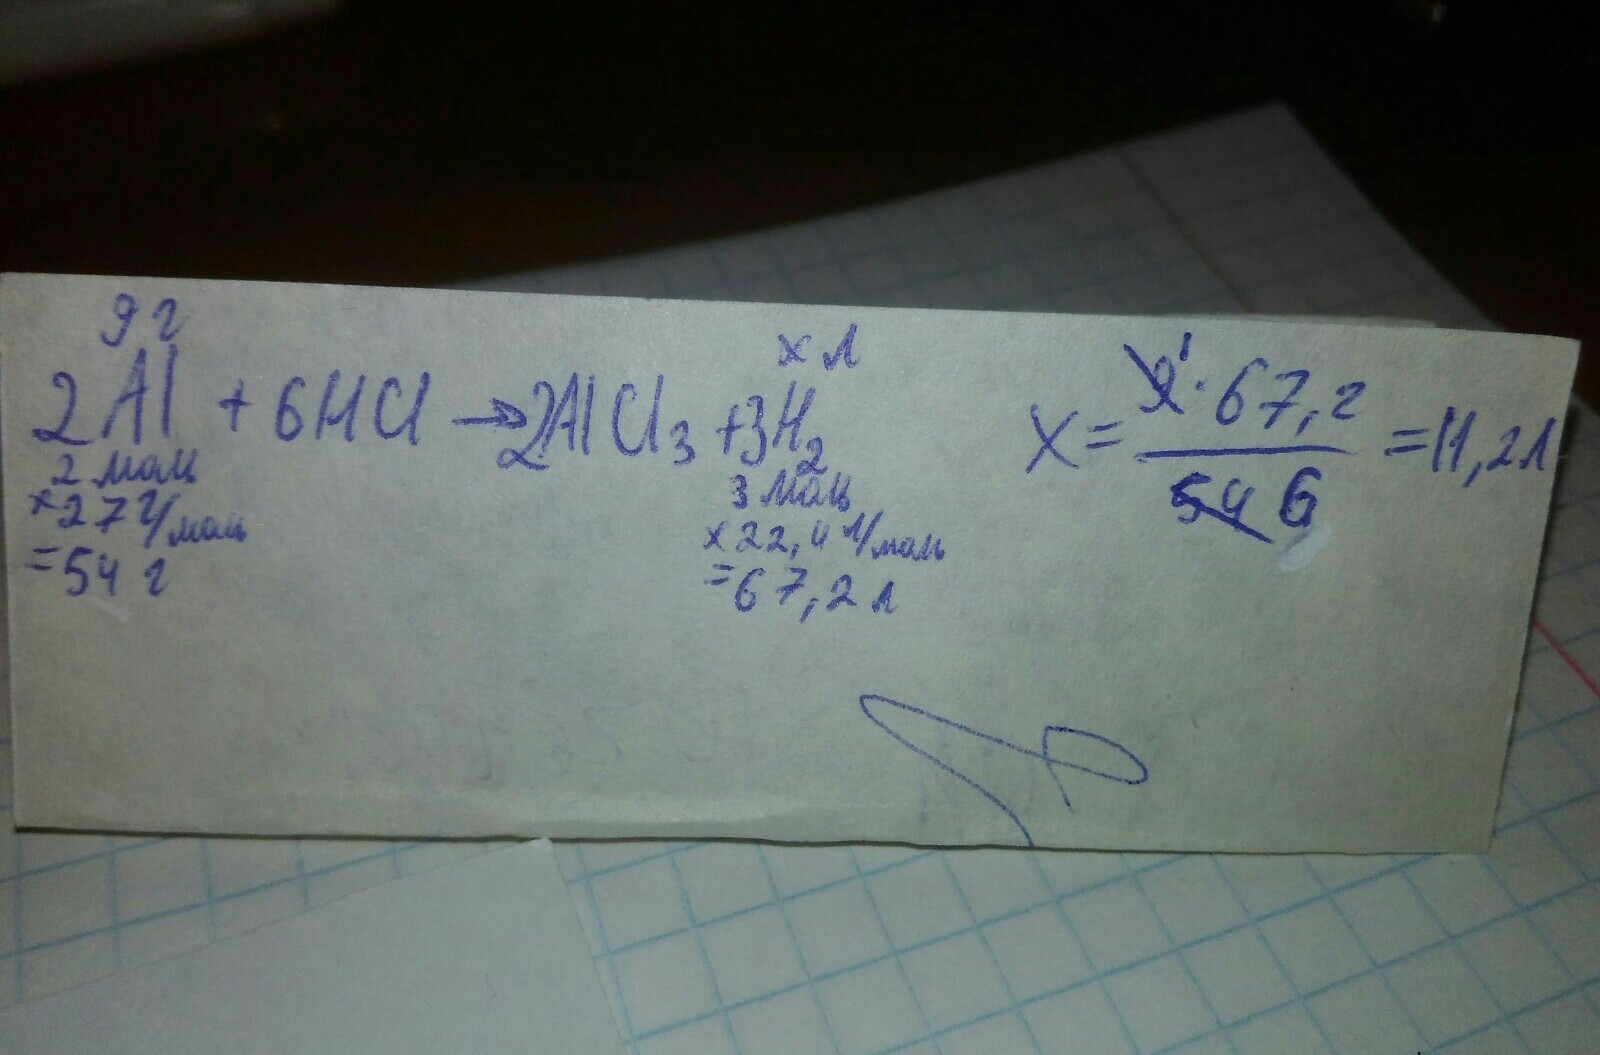 9 г
x л
2Al + 6HCl → 2AlCl₃ + 3H₂
2 моль
x 27 г/моль
= 54 г
3 моль
x 22,4 л/моль
= 67,2 л
X = 9¹ · 67,2 / 54 6 = 11,2 л